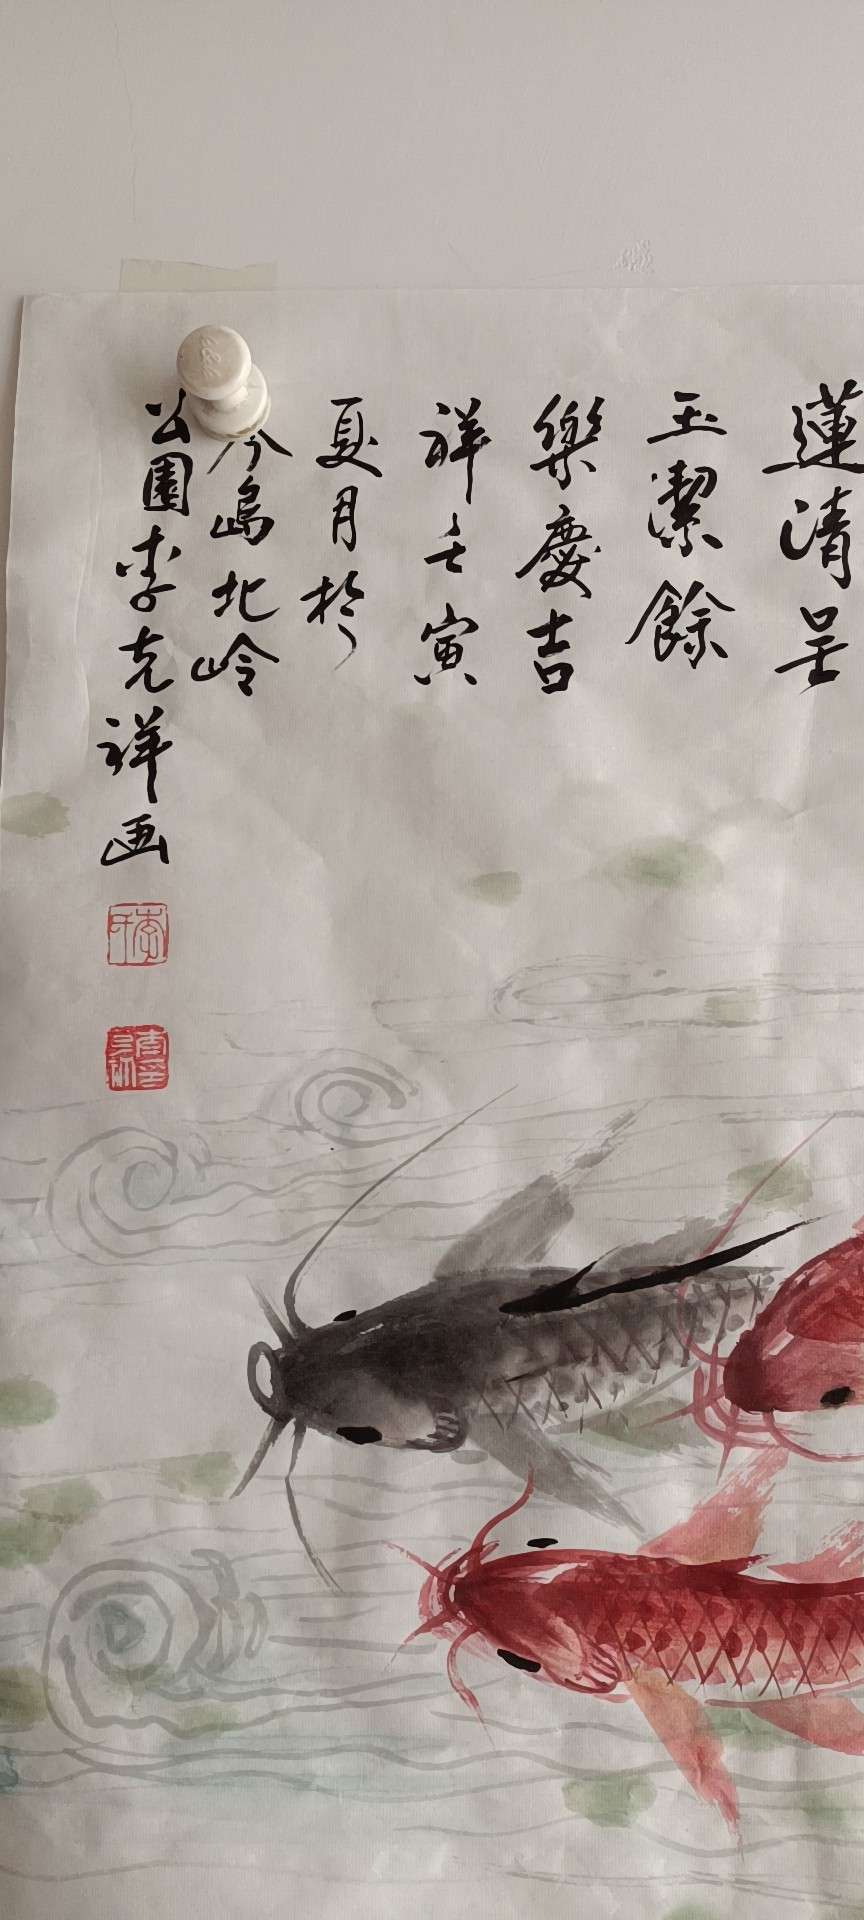 蓮清呈
玉潔餘
樂慶吉
祥壬寅
夏月於
島北岭
公園李克祥画